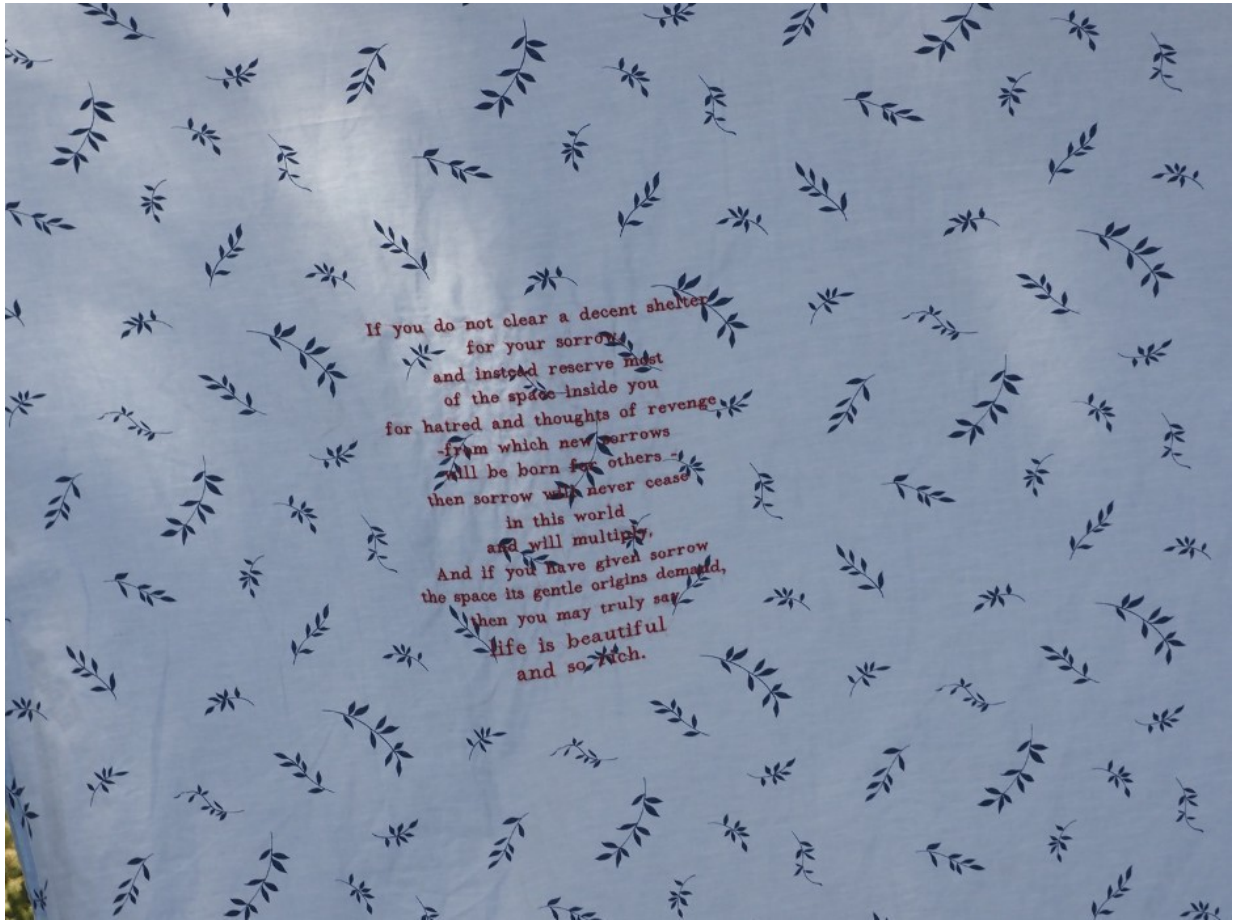 If you do not clear a decent shelter
for your sorrow,
and instead reserve most
of the space inside you
for hatred and thoughts of revenge
-from which new sorrows
will be born for others -
then sorrow will never cease
in this world
and will multiply,
And if you have given sorrow
the space its gentle origins demand,
then you may truly say
life is beautiful
and so rich.